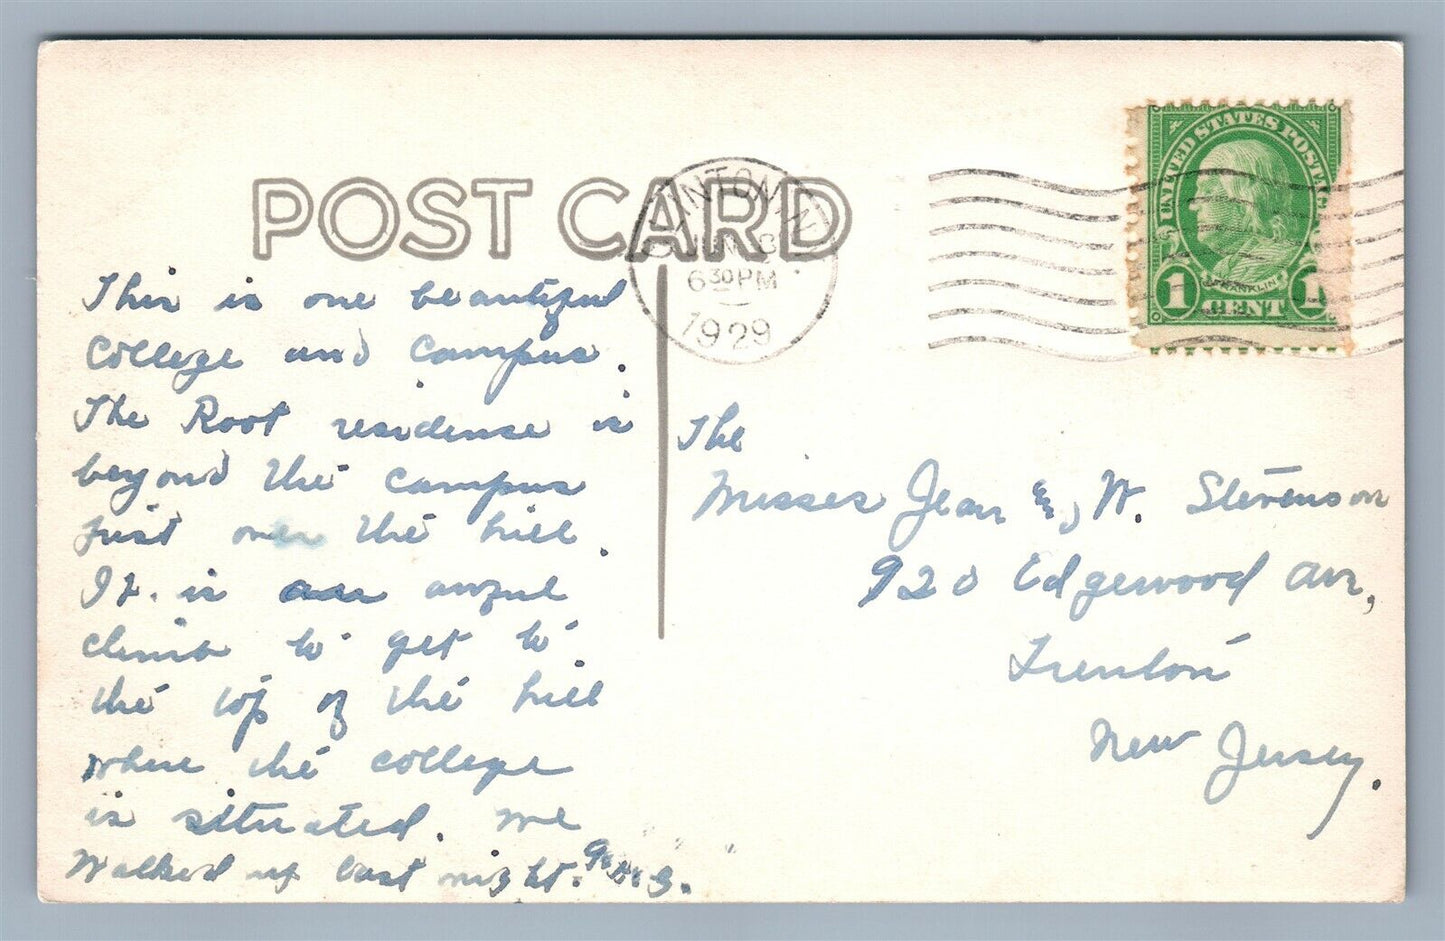 POST CARD
CLINTON N.Y.
JUN 8
6 30 PM
1929
UNITED STATES POSTAGE
FRANKLIN
1 CENT 1
This is one beautiful
College and Campus.
The Root residense is
beyond the campus
just over the hill.
It is an awful
climb to get to
the top of the hill
where the college
is situated. We
Walked up last night.
The
Misses Jean &, W. Stevenson
920 Edgewood Ave,
Trenton
New Jersey.